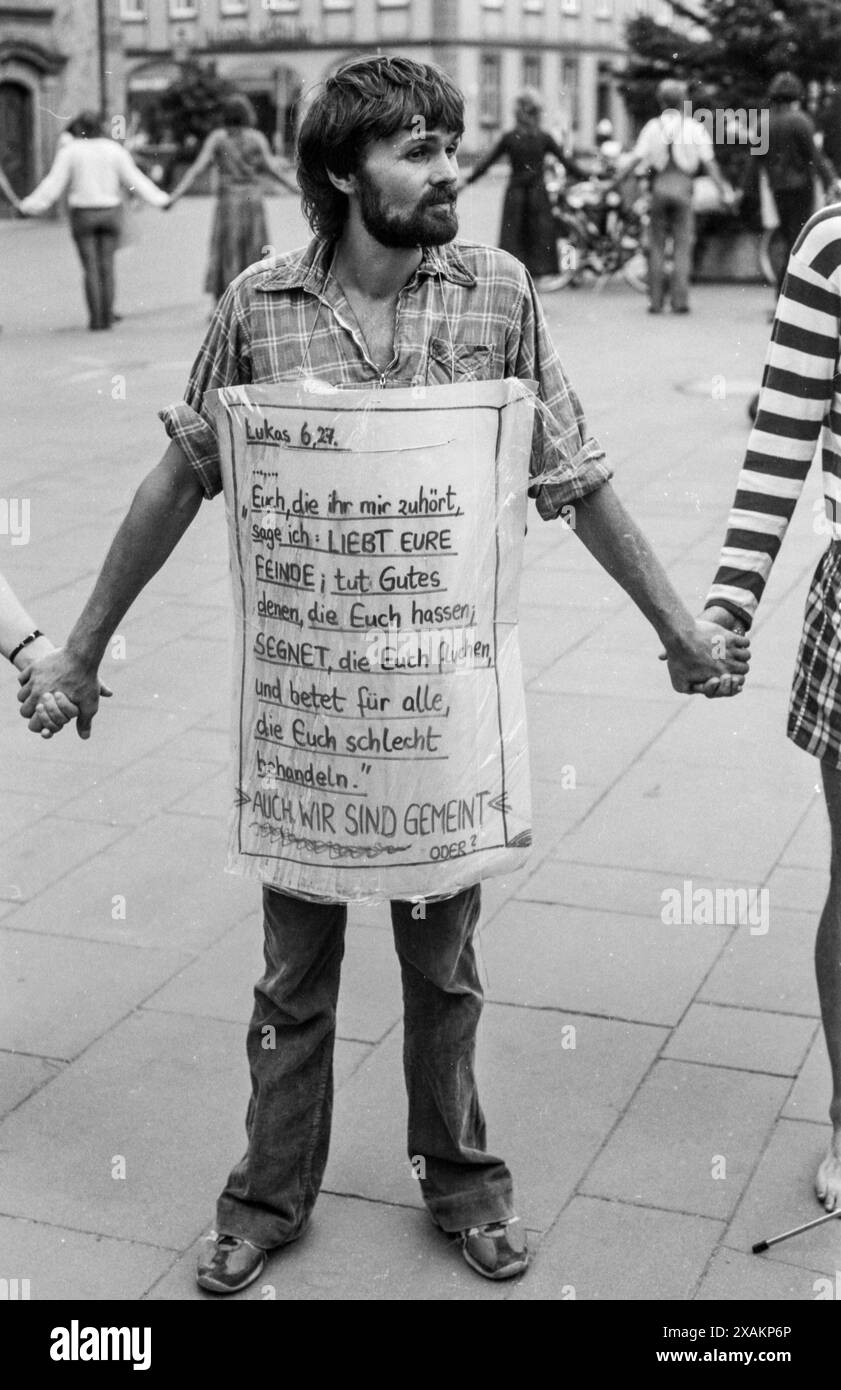 Lukas 6,27.
......
"Euch, die ihr mir zuhört,
sage ich: LIEBT EURE
FEINDE; tut Gutes
denen, die Euch hassen;
SEGNET, die Euch fluchen,
und betet für alle,
die Euch schlecht
behandeln."
>AUCH WIR SIND GEMEINT<
ODER?
a
alamy
Image ID: 2XAKP6P
www.alamy.com